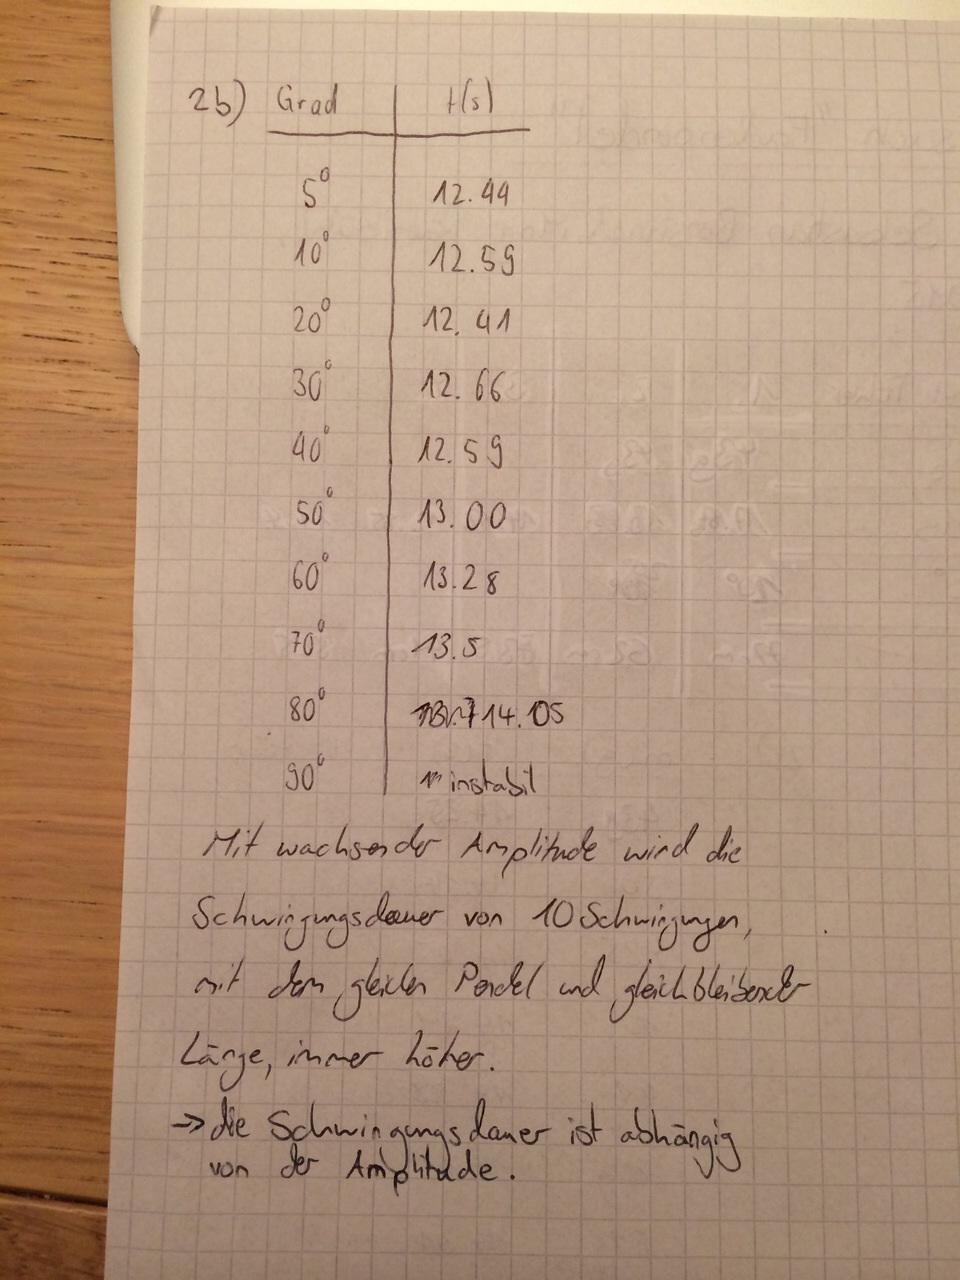 2b) Grad t(s)
5° 12.44
10° 12.59
20° 12.41
30° 12.66
40° 12.59
50° 13.00
60° 13.28
70° 13.5
80° 14.05
90° instabil
Mit wachsender Amplitude wird die
Schwingungsdauer von 10 Schwingungen,
mit dem gleichen Pendel und gleichbleibender
Länge, immer höher.
→ die Schwingungsdauer ist abhängig
von der Amplitude.